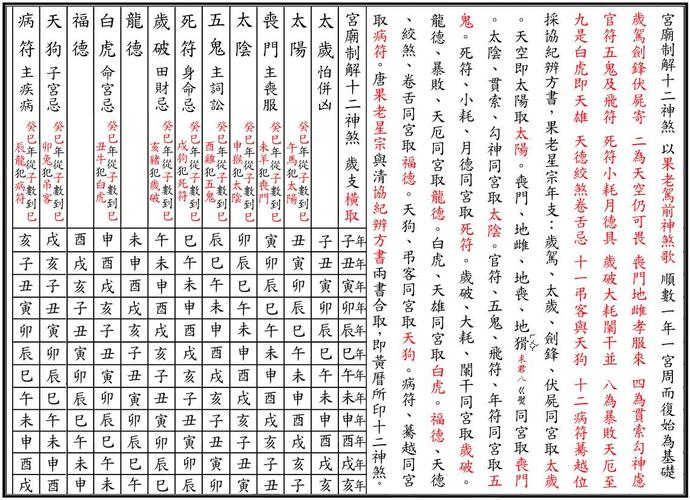 宮廟制解十二神煞 以果老駕前神煞歌 順數一年一宮周而復始為基礎
歲駕劍鋒伏屍寄 二為天空仍可畏 喪門地雌孝服來 四為貫索勾神慮
官符五鬼及飛符 死符小耗月德具 歲破大耗闌干並 八為暴敗天厄至
九是白虎即天雄 天德絞煞卷舌忌 十一吊客與天狗 十二病符驀越位
採協紀辨方書，果老星宗年支：歲駕、太歲、劍鋒、伏屍同宮取太歲
。天空即太陽取太陽。喪門、地雌、地喪、地猾 同宮取喪門
。太陰、貫索、勾神同宮取太陰。官符、五鬼、飛符、年符同宮取五
鬼。死符、小耗、月德同宮取死符。歲破、大耗、闌干同宮取歲破。
龍德、暴敗、天厄同宮取龍德。白虎、天雄同宮取白虎。福德、天德
、絞煞、卷舌同宮取福德。天狗、吊客同宮取天狗。病符、驀越同宮
取病符。唐果老星宗與清協紀辨方書兩書合取，即黃曆所印十二神煞。
宮廟制解十二神煞 歲支橫取 子年 丑年 寅年 卯年 辰年 巳年 午年 未年 申年 酉年 戌年 亥年
太歲 怕併凶 子 丑 寅 卯 辰 巳 午 未 申 酉 戌 亥
太陽 癸巳年從子數到巳 午馬犯太陽 丑 寅 卯 辰 巳 午 未 申 酉 戌 亥 子
喪門 主喪服 癸巳年從子數到巳 未羊犯喪門 寅 卯 辰 巳 午 未 申 酉 戌 亥 子 丑
太陰 癸巳年從子數到巳 申猴犯太陰 卯 辰 巳 午 未 申 酉 戌 亥 子 丑 寅
五鬼 主詞訟 癸巳年從子數到巳 酉雞犯五鬼 辰 巳 午 未 申 酉 戌 亥 子 丑 寅 卯
死符 身命忌 癸巳年從子數到巳 戌狗犯死符 巳 午 未 申 酉 戌 亥 子 丑 寅 卯 辰
歲破 田財忌 癸巳年從子數到巳 亥豬犯歲破 午 未 申 酉 戌 亥 子 丑 寅 卯 辰 巳
龍德 未 申 酉 戌 亥 子 丑 寅 卯 辰 巳 午
白虎 命宮忌 癸巳年從子數到巳 丑牛犯白虎 申 酉 戌 亥 子 丑 寅 卯 辰 巳 午 未
福德 酉 戌 亥 子 丑 寅 卯 辰 巳 午 未 申
天狗 子宮忌 癸巳年從子數到巳 卯兔犯吊客 戌 亥 子 丑 寅 卯 辰 巳 午 未 申 酉
病符 主疾病 癸巳年從子數到巳 辰龍犯病符 亥 子 丑 寅 卯 辰 巳 午 未 申 酉 戌